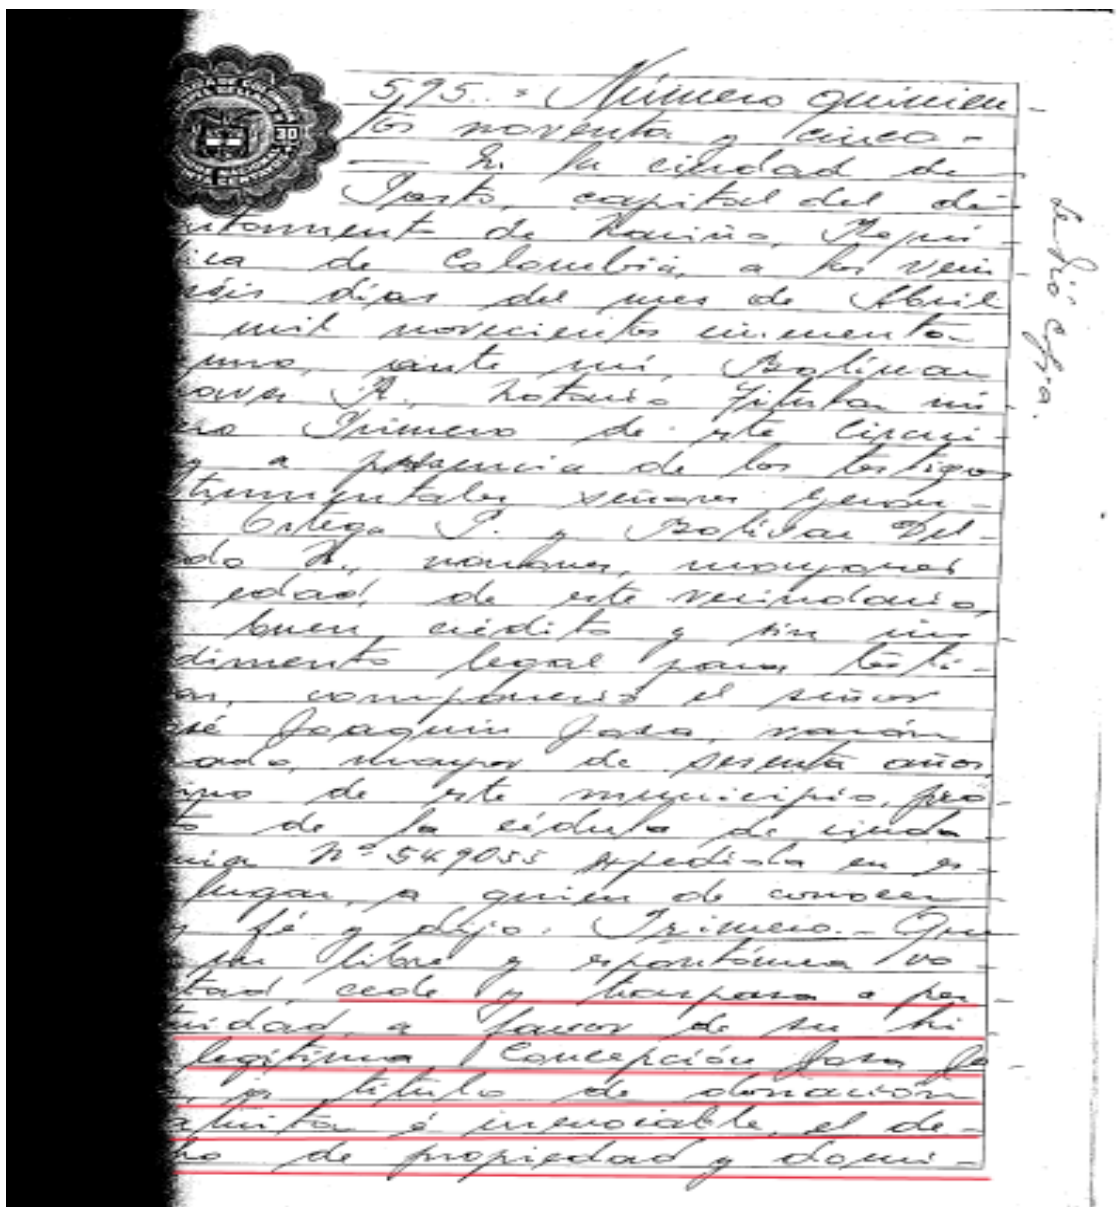 595.. = Número quinien-
tos noventa y cinco-
— En la ciudad de
Pasto, capital del de-
artamento de Nariño, Repú-
lica de Colombia, a los vein
iséis días del mes de Abril
mil novecientos cincuenta-
uno, ante mí, Bolívar
R., Notario Titular nú-
ero Primero de este Circui-
y a presencia de los testigos
trumentales señores
Ortega P. y Bolívar Del-
ado H., varones, mayores
edad, de este vecindario,
buen crédito y sin im-
dimento legal para testi-
ar, compareció el señor
osé Joaquín Josa, varón
sado, mayor de sesenta años,
ino de este municipio,
de la cédula de ciuda-
nía Nº 549055 expedida en es-
lugar, a quien de conocer
y fé y dijo: Primero.- Que
su libre y espontánea vo-
tad, cede y traspasa a per-
uidad, a favor de su hi-
legítima Concepción Josa
a título de donación
atuita é irrevocable, el de-
ho de propiedad y domi-